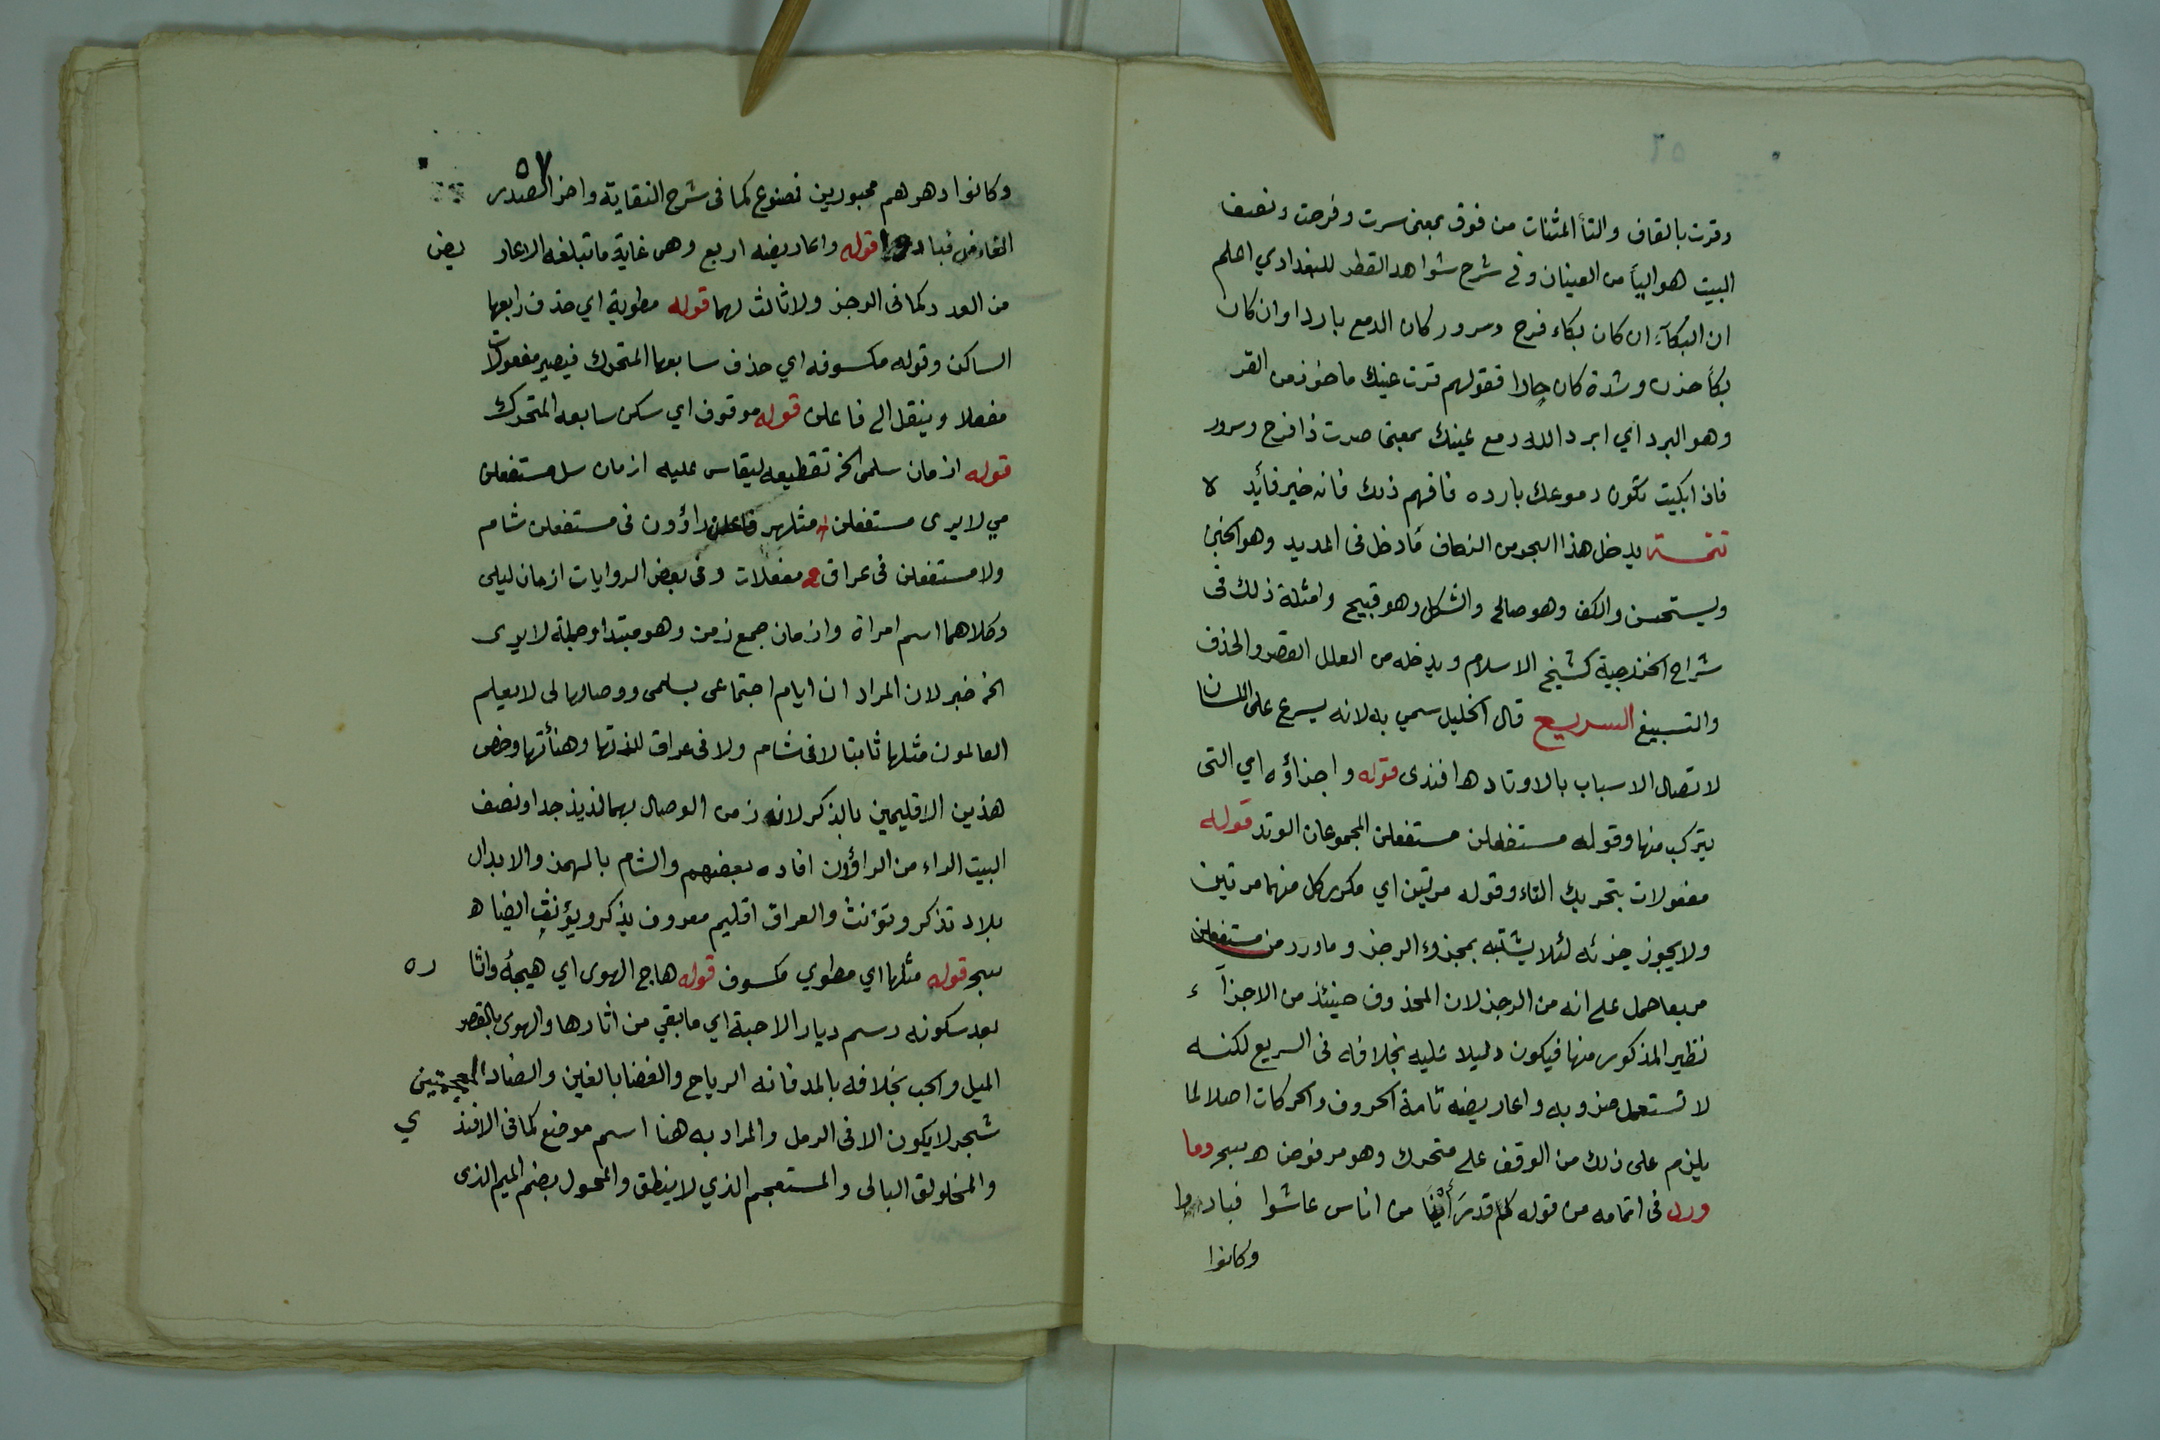 وقرت بالقاف والتأ المثنات من فوق بمعنى سرت وفرحت ونصف
البيت هو اليأ من العينان وفى شرح شواهد القطر للبغدادي اعلم
ان البكآء ان كان بكاء فرح وسرور كان الدمع باردا وان كان
بكأ حزن وشدة كان حارا فقولهم قرت عينك ماخوذ من القر
وهو البرد اي ابرد الله دمع عينك بمعنى صرت ذا فرح وسرور
فاذا بكيت تكون دموعك بارده فافهم ذلك فانه خير فائد لا
تتمة يدخل هذا البحر من الزحاف مادخل فى المديد وهو الخبن
ويستحسن والكف وهو صالح والشكل وهو قبيح وامثلة ذلك فى
شراح الخزرجية كشيخ الاسلام ويدخله من العلل القصر والحذف
والتسبيغ السريع قال الخليل سمي به لانه يسرع على اللسان
لاتصال الاسباب بالاوتاد ه افندى قوله واجزاؤه اي التى
يتركب منها وقوله مستفعلن مستفعلن المجموعان الوتد قوله
مفعولات بتحريك التاء وقوله مرتين اي مكرر كل منهما مرتين
ولا يجوز جزئه لئلا يشتبه بمجزوء الرجز وماورد من مستفعلن
مربعا حمل على انه من الرجز لان المحذوف حينئذ من الاجزآ ء
نظير المذكور منها فيكون دليلا عليه بخلافه فى السريع لكنه
لا تستعمل ضروبه واعاريضه تامة الحروف والحركات اصلا لما
يلزم على ذلك من الوقف على متحرك وهو مرفوض ه سجر وما
ورد فى اتمامه من قوله كم قد رأينا من اناس عاشوا فبادوا
وكانوا
٥٧
وكانوا دهرهم محبورين فصنوع كما فى شرح النقاية واخر الصدر
الفاء من فبادوا قوله واعاريضه اربع وهى غاية ما تبلغه الاعار يض
من العدد كما فى الرجز ولا ثالث لهما قوله مطوية اي حذف رابعها
الساكن وقوله مكسوفه اي حذف سابعها المتحرك فيصير مفعولات
مفعلا وينقل الى فاعلن قوله موقوف اي سكن سابعه المتحرك
قوله ازمان سلمى الخ تقطيعه ليقاس عليه ازمان سل مستفعلن
مي لا يرى مستفعلن مثلهر فاعلن راؤون فى مستفعلن شام
ولا مستفعلن فى عراق مفعلات وفى بعض الروايات ازمان ليلى
وكلاهما اسم امراة وازمان جمع زمن وهو مبتدا وجملة لا يرى
الخ خبر لان المراد ان ايام اجتماعى بسلمى ووصالها لى لا يعلم
العالمون مثلها ثابتا لا فى شام ولا فى عراق للذتها وهنأتها وخص
هذين الاقليمين بالذكر لانه زمن الوصال بهما لذيذ جدا ونصف
البيت الراء من الراؤون افاده بعضهم والشام بالهمز والابدال
بلاد تذكر وتؤنث والعراق اقليم معروف يذكر ويؤنث ايضا ه
سجر قوله مثلها اي مطوي مكسوف قوله هاج الهوى اي هيجه واثا ره
بعد سكونه رسم ديار الاحبة اي ما بقي من اثارها والهوى بالقصر
الميل والحب بخلافه بالمد فانه الرياح والغضا بالغين والضاد المعجمتين
شجر لا يكون الا فى الرمل والمراد به هنا اسم موضع كما فى الافند ي
والمخلولق البالى والمستعجم الذي لا ينطق والمحول بضم الميم الذى